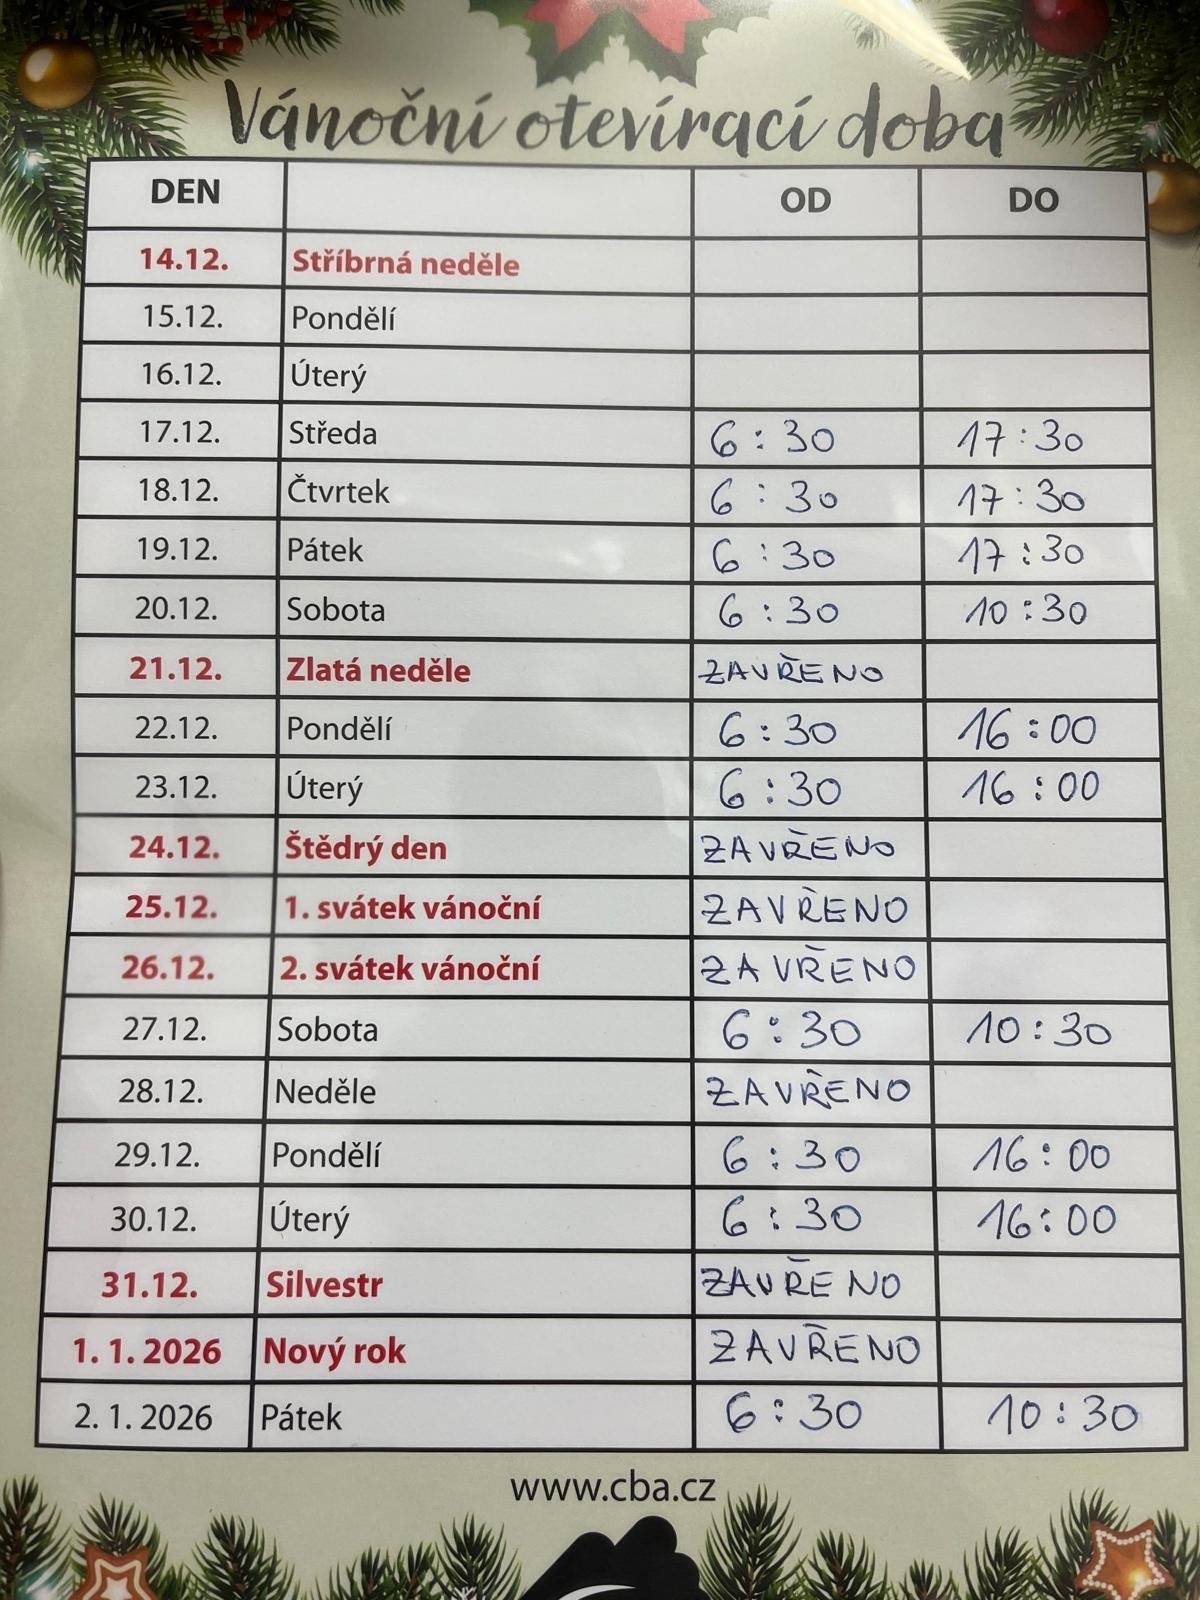 Vánoční otevírací doba
DEN OD DO
14.12. Stříbrná neděle
15.12. Pondělí
16.12. Úterý
17.12. Středa 6:30 17:30
18.12. Čtvrtek 6:30 17:30
19.12. Pátek 6:30 17:30
20.12. Sobota 6:30 10:30
21.12. Zlatá neděle ZAVŘENO
22.12. Pondělí 6:30 16:00
23.12. Úterý 6:30 16:00
24.12. Štědrý den ZAVŘENO
25.12. 1. svátek vánoční ZAVŘENO
26.12. 2. svátek vánoční ZAVŘENO
27.12. Sobota 6:30 10:30
28.12. Neděle ZAVŘENO
29.12. Pondělí 6:30 16:00
30.12. Úterý 6:30 16:00
31.12. Silvestr ZAVŘENO
1. 1. 2026 Nový rok ZAVŘENO
2. 1. 2026 Pátek 6:30 10:30
www.cba.cz